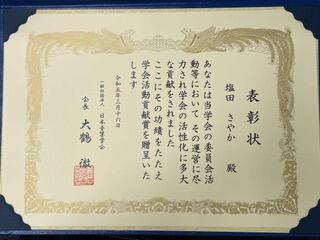 表彰状
塩田 さやか 殿
あなたは当学会の委員会活
動等において その運営に尽
力され学会の活性化に多大
な貢献をされました
ここにその功績をたたえ
学会活動貢献賞を贈呈いた
します
令和五年三月十六日
一般社団法人 日本音響学会
会長 大鶴 徹